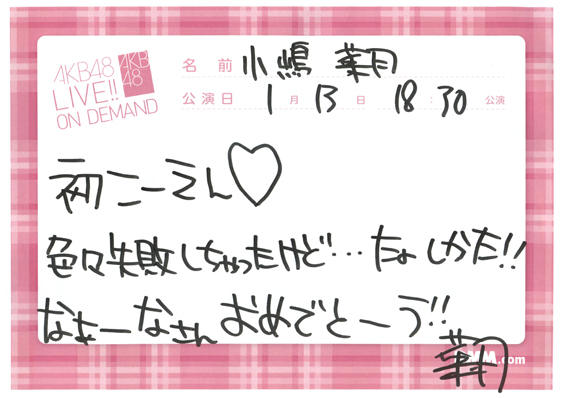 AKB48
LIVE!!
ON DEMAND
AKB
48
名前 小嶋 菜月
公演日 1月13日 18:30 公演
初こーえん♡
色々失敗しちゃったけど…たのしかた!!
なぁーなさんおめでとーう!!
.com